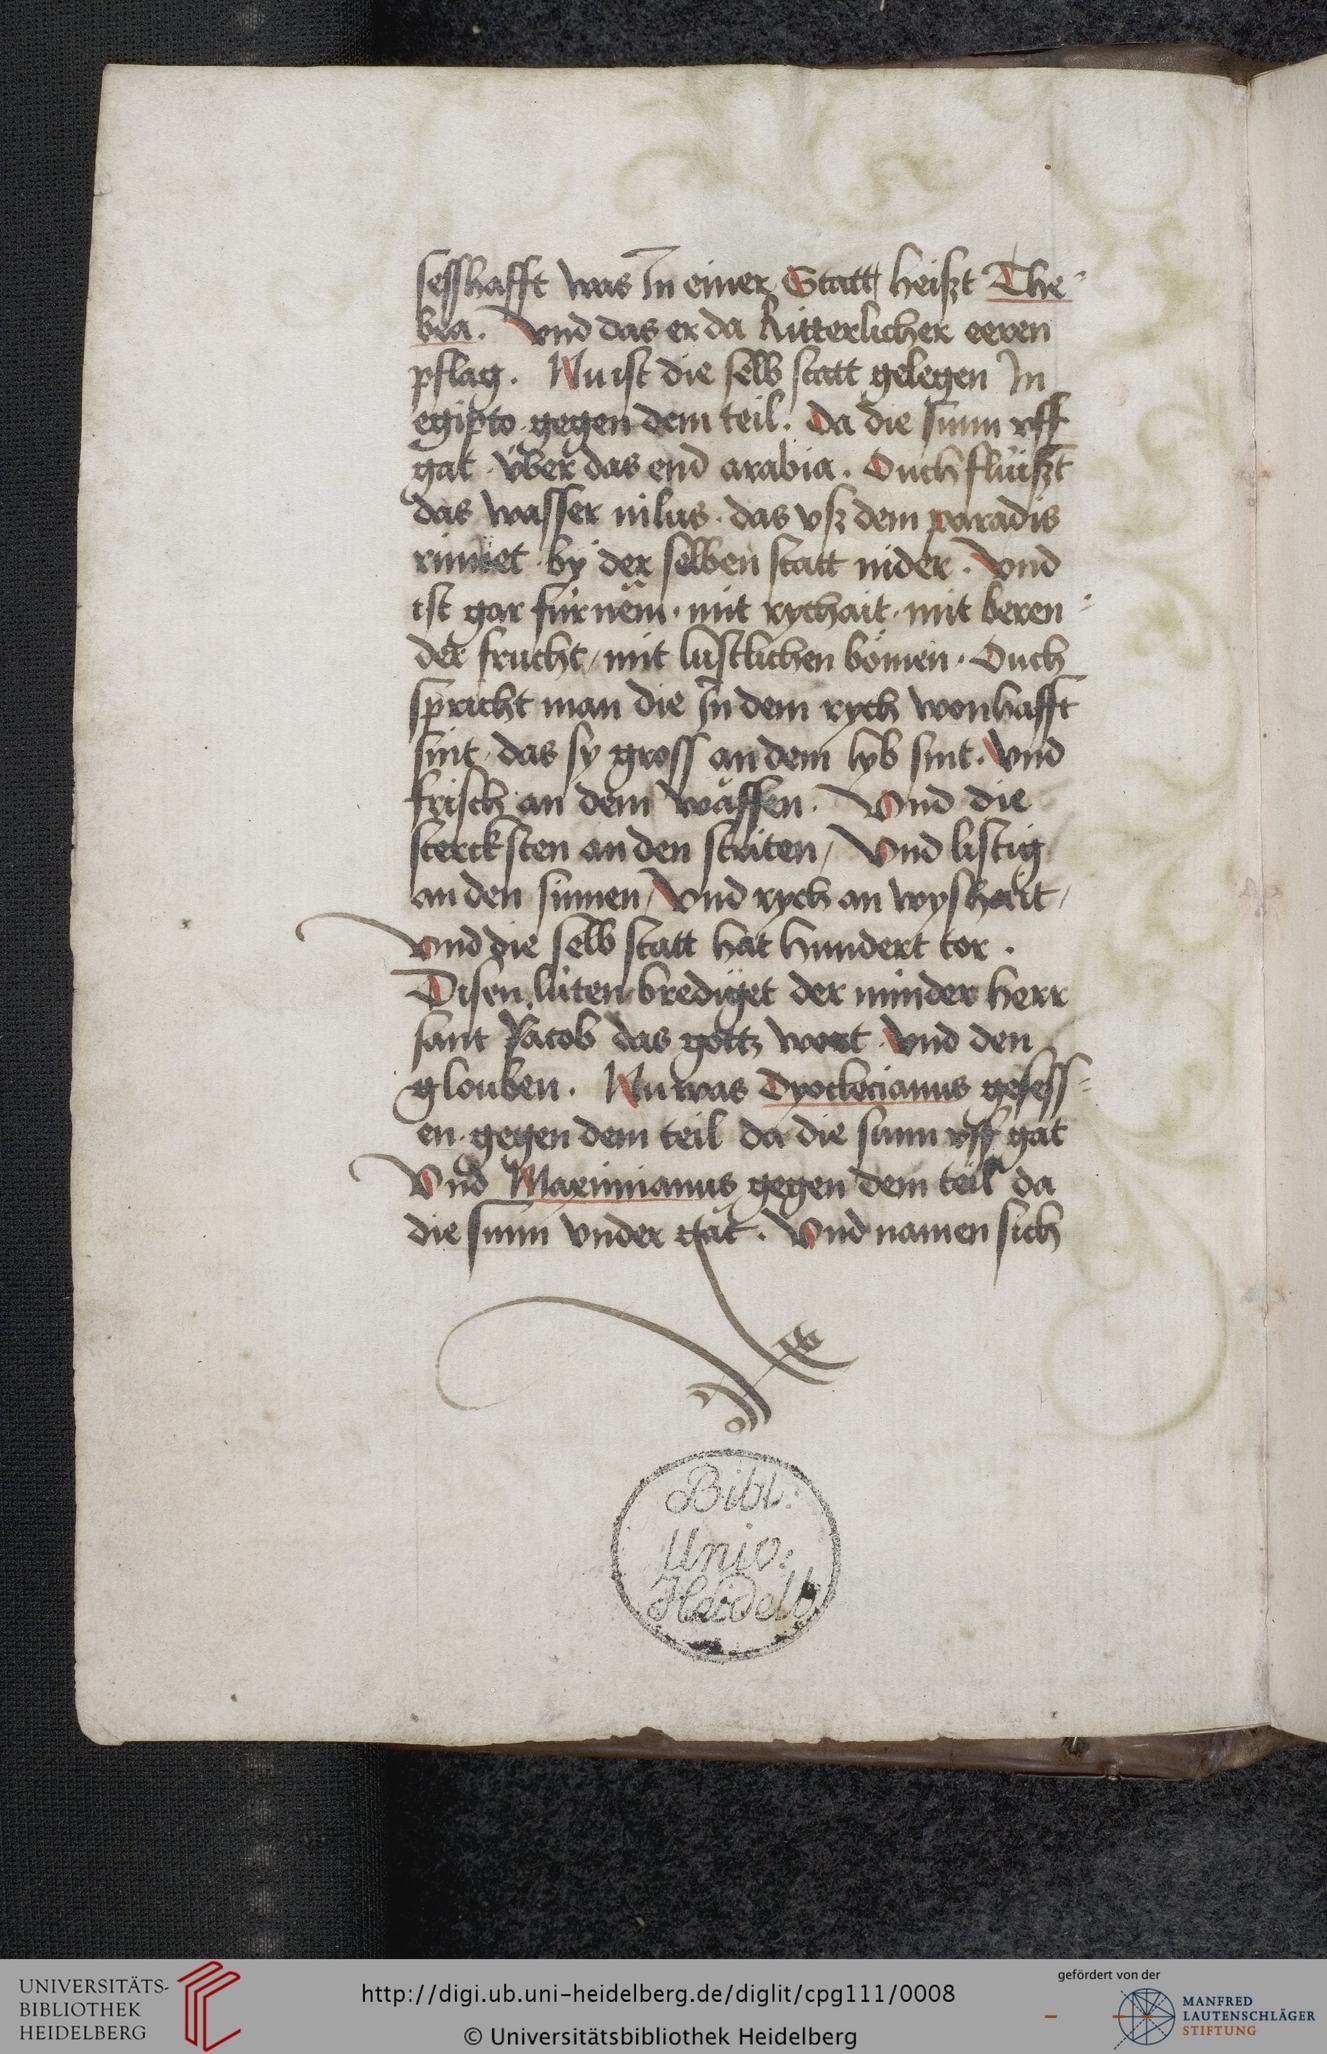 sesshafft was In einer Statt heiszt The-
bea. Vnd das er da Ritterlicher eeren
pflag. Nu ist die selb statt gelegen In
egipto gegen dem teil. Da die sunn vff
gat über das end arabia. Ouch flüszt
das wasser nilus. das vsz dem paradis
rinnet by der selben statt nider. Vnd
ist gar fürnëm. mit rychait. mit beren-
der frucht / mit lustlichen bömen. Ouch
spricht man die In dem rych wonhafft
sint. das sy gross an dem lyb sint. Vnd
frisch an dem wäffen. Vnd die
stercksten an den striten / Vnd listig
an den sinnen / Vnd rych an wyshait /
Vnd die selb statt hat hundert tor.
Disen lüten brediget der minder herr
sant Jacob das gottz wort. Vnd den
glouben. Nu was Dyoclecianus gesess-
en. gegen dem teil da die sunn vff gat
Vnd Maximianus gegen dem teil da
die sunn vnder gat. Vnd namen sich
Bibl:
Univ:
Heidelb
UNIVERSITÄTS-
BIBLIOTHEK
HEIDELBERG
http://digi.ub.uni-heidelberg.de/diglit/cpg111/0008
© Universitätsbibliothek Heidelberg
gefördert von der
MANFRED
LAUTENSCHLÄGER
STIFTUNG